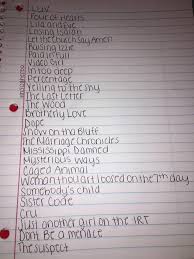 Luv
Four of Hearts
Lila and Eve
Losing Isaiah
Let the Church Say Amen
Raising Izzie
Paid in Full
Video Girl
In too deep
Percentage
Yelling to the sky
The Last Letter
The Wood
Brotherly Love
Dope
Snow on tha Bluff
The Marriage Chronicles
Mississippi Damned
Mysterious Ways
Caged Animal
Woman thou art loosed on the 7th day
Somebody's child
Sister Code
Cru
Just another girl on the IRT
Dont Be a menace
The suspect